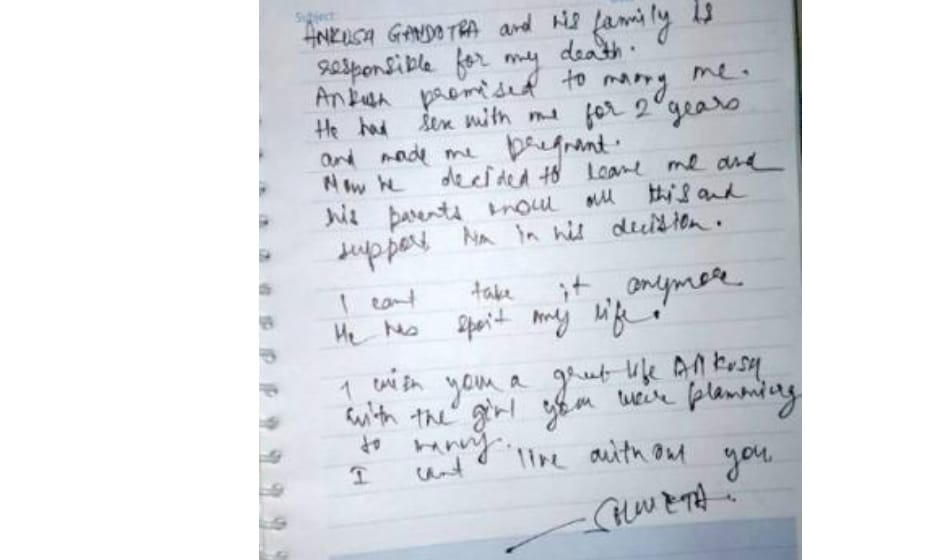 Subject
ANKUSH GANDOTRA and his family is
responsible for my death.
Ankush promised to marry me.
He had sex with me for 2 years
and made me pregnant.
Now he decided to leave me and
his parents know all this and
support him in his decision.
I cant take it anymore
He has spoit my life.
I wish you a great life ANKUSH
with the girl you were planning
to marry.
I cant live without you
SHWETA.